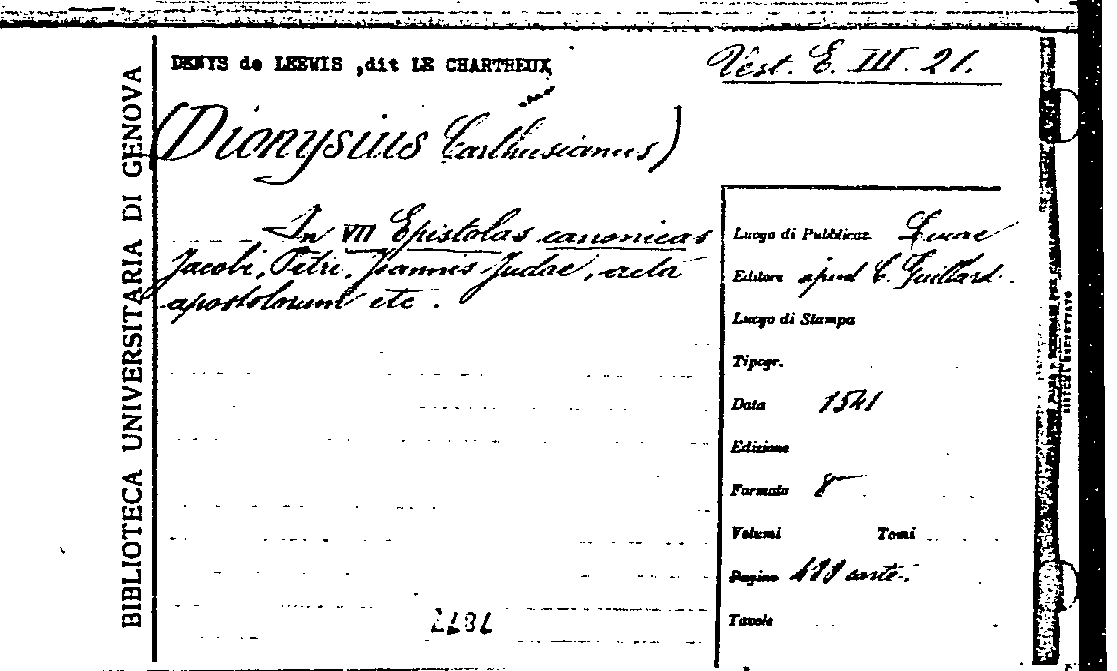 BIBLIOTECA UNIVERSITARIA DI GENOVA
DENYS de LEEWIS ,dit LE CHARTREUX
Vest. E. III. 21.
(Dionysius Carthusianus)
In VII Epistolas canonicas
Jacobi, Petri, Joannis Judae, acta
apostolorum etc.
Luogo di Pubblicaz.
Editore apud C. Guillard.
Luogo di Stampa
Tipogr.
Data 1541
Edizione
Formato 8°
Volumi Tomi
Pagine carte.
Tavole